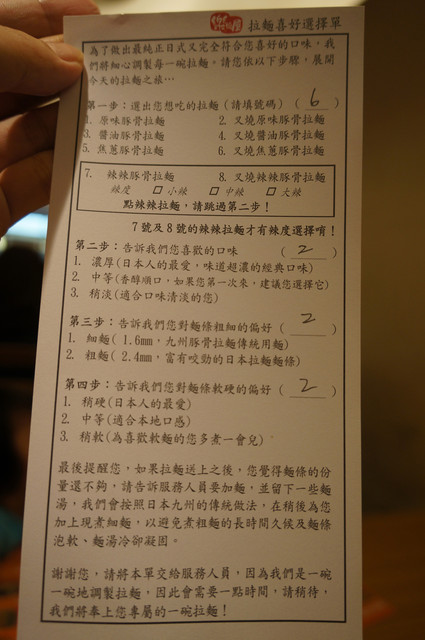 拉麵喜好選擇單
為了做出最純正日式又完全符合您喜好的口味,我
們將細心調製每一碗拉麵。請您依以下步驟,展開
今天的拉麵之旅…
第一步:選出您想吃的拉麵(請填號碼)( 6 )
1. 原味豚骨拉麵 2. 叉燒原味豚骨拉麵
3. 醬油豚骨拉麵 4. 叉燒醬油豚骨拉麵
5. 焦蔥豚骨拉麵 6. 叉燒焦蔥豚骨拉麵
7. 辣辣豚骨拉麵 8. 叉燒辣辣豚骨拉麵
辣度 □ 小辣 □ 中辣 □ 大辣
點辣辣拉麵,請跳過第二步!
7號及8號的辣辣拉麵才有辣度選擇唷!
第二步:告訴我們您喜歡的口味 ( 2 )
1. 濃厚(日本人的最愛,味道超濃的經典口味)
2. 中等(香醇順口,如果您第一次來,建議您選擇它)
3. 稍淡(適合口味清淡的您)
第三步:告訴我們您對麵條粗細的偏好 ( 2 )
1. 細麵( 1.6mm,九州豚骨拉麵傳統用麵)
2. 粗麵( 2.4mm,富有咬勁的日本拉麵麵條)
第四步:告訴我們您對麵條軟硬的偏好 ( 2 )
1. 稍硬(日本人的最愛)
2. 中等(適合本地口感)
3. 稍軟(為喜歡軟麵的您多煮一會兒)
最後提醒您,如果拉麵送上之後,您覺得麵條的份
量還不夠,請告訴服務人員要加麵,並留下一些麵
湯,我們會按照日本九州的傳統做法,在稍後為您
加上現煮細麵,以避免煮粗麵的長時間久候及麵條
泡軟、麵湯冷卻凝固。
謝謝您,請將本單交給服務人員,因為我們是一碗
一碗地調製拉麵,因此會需要一點時間,請稍待,
我們將奉上您專屬的一碗拉麵!